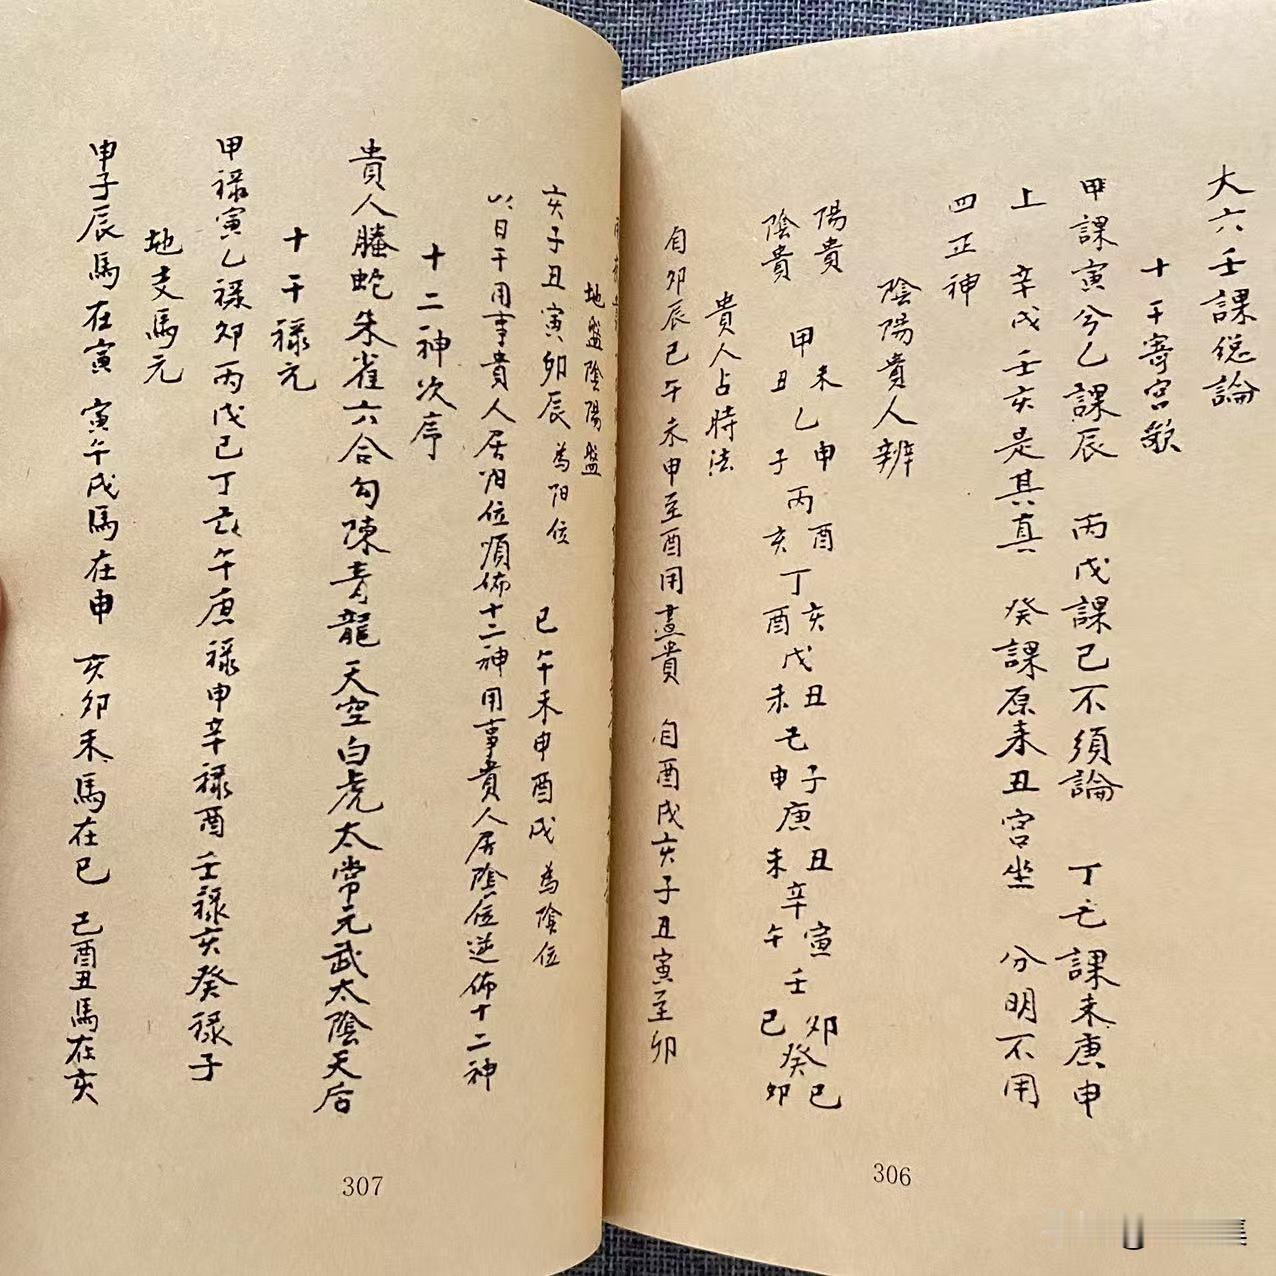 大六壬課緫論
十干寄宮歌
甲課寅兮乙課辰 丙戊課巳不須論 丁己課未庚申
上 辛戌壬亥是其真 癸課原來丑宮坐 分明不用
四正神
陰陽貴人辨
陽貴 未 申 酉 亥 丑 子 丑 寅 卯 巳
甲 乙 丙 丁 戊 己 庚 辛 壬 癸
陰貴 丑 子 亥 酉 未 申 未 午 巳 卯
貴人占時法
自卯辰巳午未申至酉用晝貴 自酉戌亥子丑寅至卯
306
地盤陰陽盤
亥子丑寅卯辰為阳位 巳午未申酉戌為陰位
以日干用事貴人居阳位順佈十二神用事貴人居陰位逆佈十二神
十二神次序
貴人螣蛇朱雀六合勾陳青龍天空白虎太常元武太陰天后
十干禄元
甲禄寅乙禄卯丙戊巳丁己午庚禄申辛禄酉壬禄亥癸禄子
地支馬元
申子辰馬在寅 寅午戌馬在申 亥卯未馬在巳 巳酉丑馬在亥
307